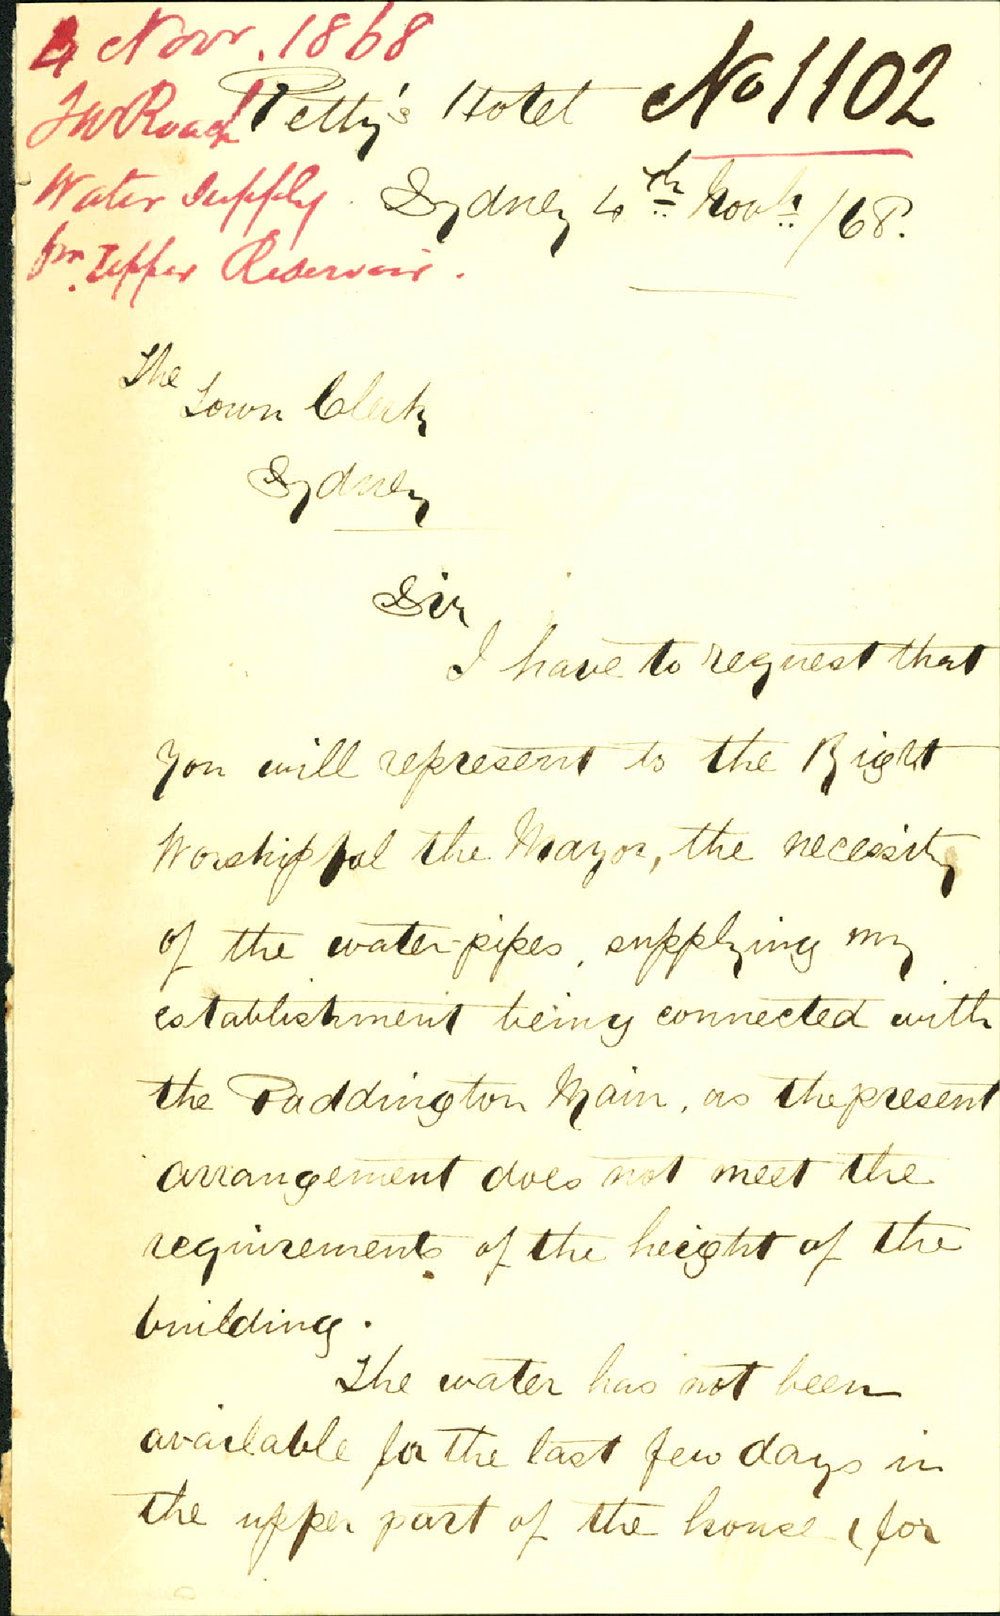 4 Novr. 1868
J W Roach
Water Supply
fm. Upper Reservoir.
No 1102
Petty's Hotel
Sydney 4th Novbr /68.
The
Town Clerk
Sydney
Sir
I have to request that
you will represent to the Right
Worshipful the Mayor, the necessity
of the water-pipes, supplying my
establishment being connected with
the Paddington Main, as the present
arrangement does not meet the
requirements of the height of the
building.
The water has not been
available for the last few days in
the upper part of the house (for